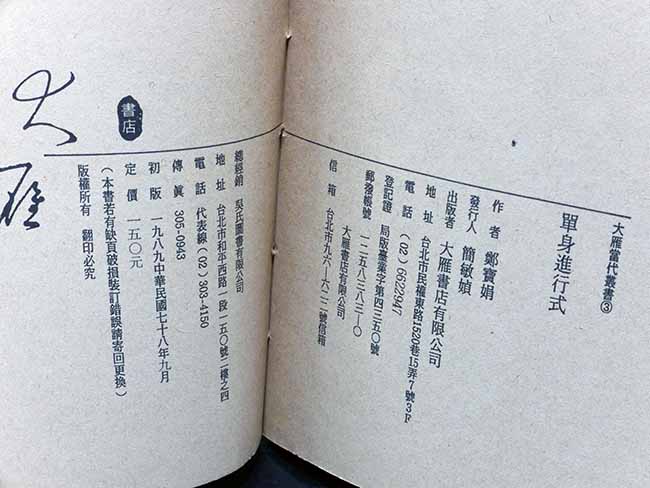 大雁當代叢書③
單身進行式
作者 鄭寶娟
發行人 簡敏媜
出版者 大雁書店有限公司
地址 台北市民權東路1520巷15弄7號3F
電話 (02)6622947
登記證 局版臺業字第四三五〇號
郵撥帳號 一二五八三八三─〇
大雁書店有限公司
信箱 台北市九六─六二二號信箱
總經銷 吳氏圖書有限公司
地址 台北市和平西路一段一五〇號二樓之四
電話 代表線(02)303-4150
傳眞 305-0943
初版 一九八九中華民國七十八年九月
定價 一五〇元
(本書若有缺頁破損裝訂錯誤請寄回更換)
版權所有 翻印必究
書店
大雁